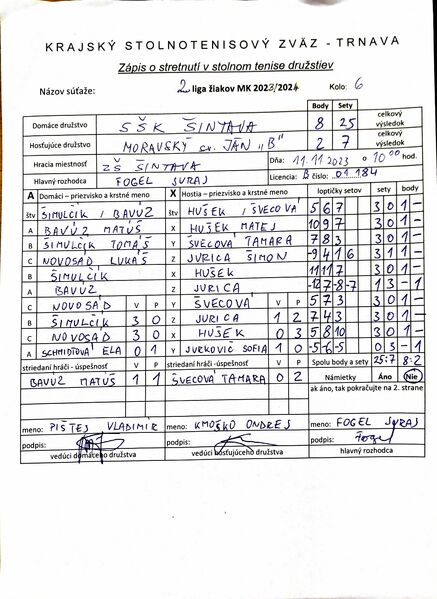 KRAJSKÝ STOLNOTENISOVÝ ZVÄZ - TRNAVA
Zápis o stretnutí v stolnom tenise družstiev
Názov súťaže: 2 liga žiakov MK 2023/2024 Kolo: 6
Body Sety
Domáce družstvo SŠK ŠINTAVA 8 25 celkový výsledok
Hosťujúce družstvo MORAVSKÝ SV. JÁN „B" 2 7 celkový výsledok
Hracia miestnosť ZŠ ŠINTAVA Dňa: 11.11.2023 o 10 00 hod.
Hlavný rozhodca FOGEL JURAJ Licencia: B číslo: 01 184
A Domáci - priezvisko a krstné meno X Hostia - priezvisko a krstné meno loptičky setov sety body
štv ŠIMULČÍK / BAVUZ štv HUŠEK / ŠVECOVÁ 5 6 7 3 0 1 -
A BAVUZ MATÚŠ X HUŠEK MATEJ 10 9 7 3 0 1 -
B ŠIMULČÍK TOMÁŠ Y ŠVECOVÁ TAMARA 7 8 3 3 0 1 -
C NOVOSAD LUKÁŠ Z JURICA ŠIMON -9 4 1 6 3 1 1 -
B ŠIMULČÍK X HUŠEK 11 11 7 3 0 1 -
A BAVUZ Z JURICA -12 7 -8 -7 1 3 - 1
C NOVOSAD V P Y ŠVECOVÁ V P 5 7 3 3 0 1 -
B ŠIMULČÍK 3 0 Z JURICA 1 2 7 4 3 3 0 1 -
C NOVOSAD 3 0 X HUŠEK 0 3 5 8 10 3 0 1 -
A SCHMIDTOVÁ ELA 0 1 Y JURKOVIČ SOFIA 1 0 -5 -6 -5 0 3 - 1
striedaní hráči - úspešnosť V P striedaní hráči - úspešnosť V P Spolu body a sety 25:7 8:2
BAVUZ MATÚŠ 1 1 ŠVECOVÁ TAMARA 0 2 Námietky Áno Nie
ak áno, tak pokračujte na 2. strane
meno: PIŠTEJ VLADIMÍR meno: KMOŠKO ONDREJ meno: FOGEL JURAJ
podpis: podpis: podpis: Fogel
vedúci domáceho družstva vedúci hosťujúceho družstva hlavný rozhodca